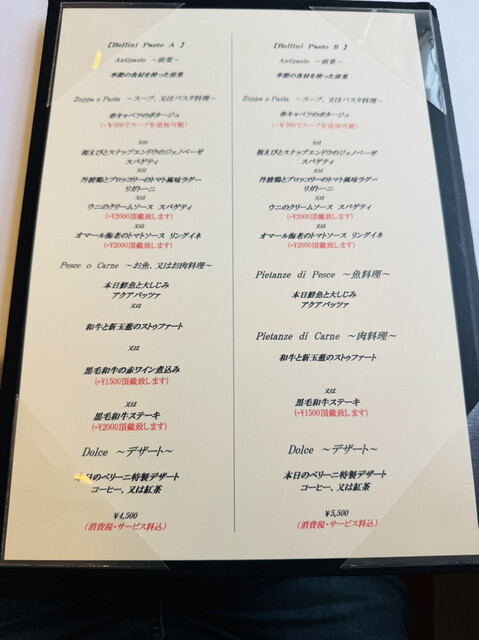 【Bellini Pasto A 】
Antipasto ～前菜～
季節の食材を使った前菜
Zuppa o Pasta ～スープ、又はパスタ料理～
春キャベツのポタージュ
(+¥500でスープを追加可能)
又は
桜えびとスナップエンドウのジェノベーゼ
スパゲティ
又は
丹波鶏とブロッコリーのトマト風味ラグー
リガトーニ
又は
ウニのクリームソース スパゲティ
(+¥2000頂戴致します)
又は
オマール海老のトマトソース リングイネ
(+¥2000頂戴致します)
Pesce o Carne ～お魚、又はお肉料理～
本日鮮魚と大しじみ
アクアパッツァ
又は
和牛と新玉葱のストゥファート
又は
黒毛和牛の赤ワイン煮込み
(+¥1500頂戴致します)
又は
黒毛和牛ステーキ
(+¥2000頂戴致します)
Dolce ～デザート～
本日のベリーニ特製デザート
コーヒー、又は紅茶
¥4,500
(消費税・サービス料込)
【Bellini Pasto B 】
Antipasto ～前菜～
季節の食材を使った前菜
Zuppa o Pasta ～スープ、又はパスタ料理～
春キャベツのポタージュ
(+¥500でスープを追加可能)
又は
桜えびとスナップエンドウのジェノベーゼ
スパゲティ
又は
丹波鶏とブロッコリーのトマト風味ラグー
リガトーニ
又は
ウニのクリームソース スパゲティ
(+¥2000頂戴致します)
又は
オマール海老のトマトソース リングイネ
(+¥2000頂戴致します)
Pietanze di Pesce ～魚料理～
本日鮮魚と大しじみ
アクアパッツァ
Pietanze di Carne ～肉料理～
和牛と新玉葱のストゥファート
又は
黒毛和牛ステーキ
(+¥1500頂戴致します)
Dolce ～デザート～
本日のベリーニ特製デザート
コーヒー、又は紅茶
¥5,500
(消費税・サービス料込)